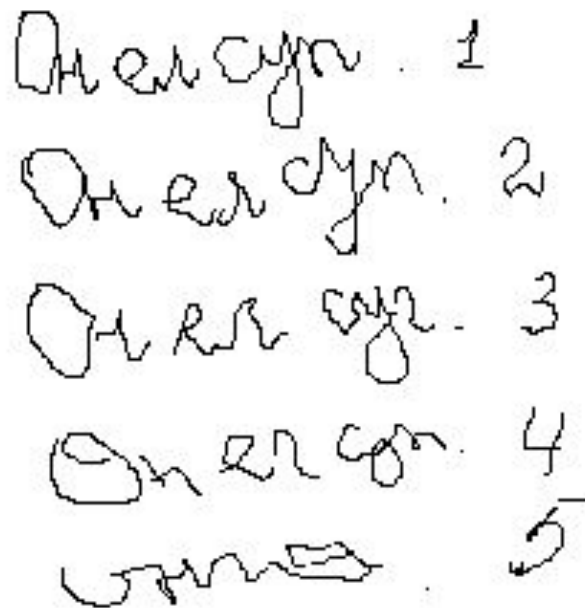 Он ел суп. 1
Он ел суп. 2
Он ел суп. 3
Он ел суп. 4
5